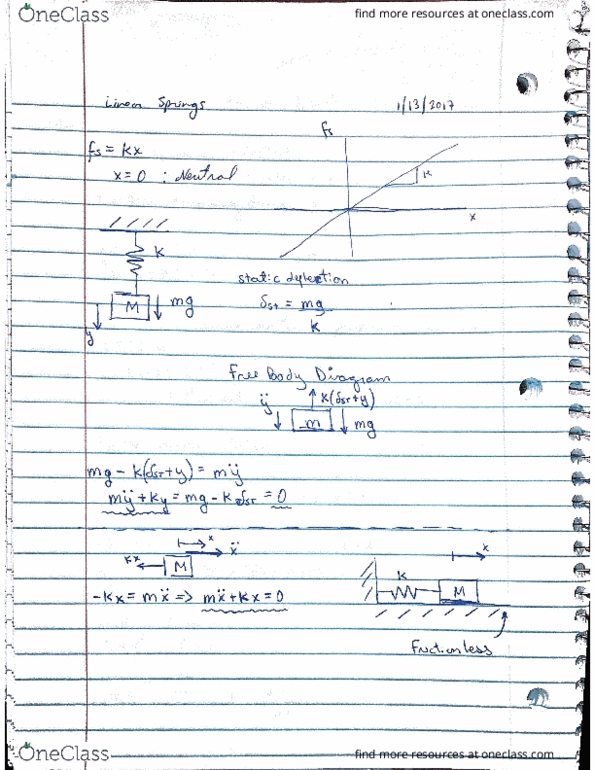 OneClass find more resources at oneclass.com
Linear Springs 1/13/2017
fs
fs = kx
x=0 : Neutral
K
x
K
static deflection
M mg
δst = mg
K
y
Free Body Diagram
ÿ K(δst+y)
m mg
mg - K(δst+y) = mÿ
mÿ+ky = mg - Kδst = 0
x
ẍ
x
kx
M
K
M
-Kx = mẍ => mẍ+Kx=0
Frictionless
OneClass find more resources at oneclass.com